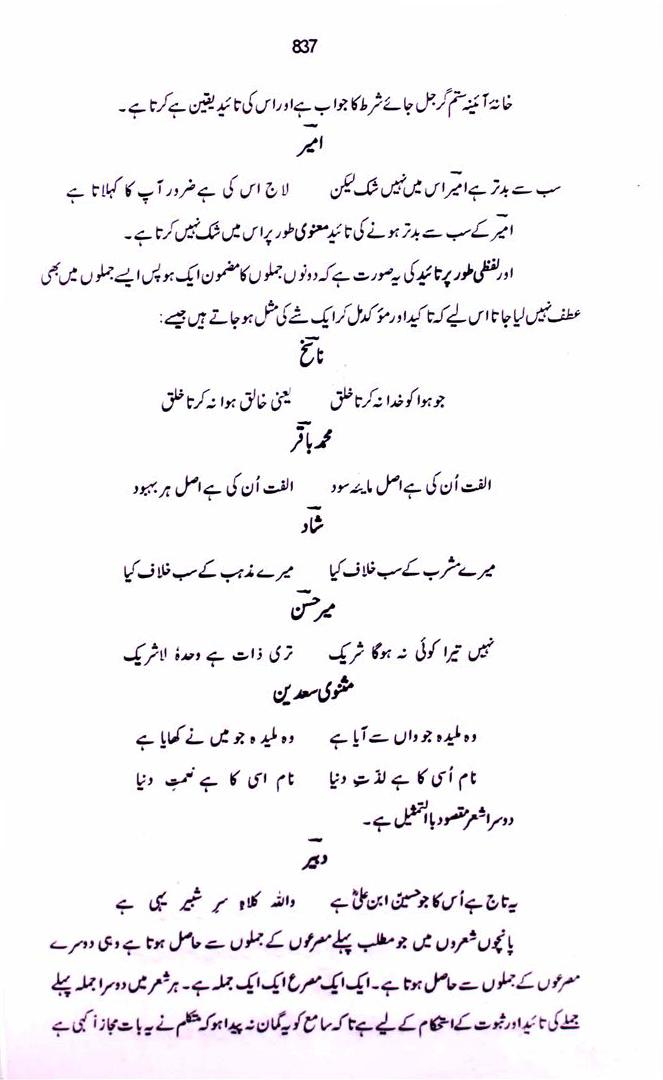 837
خانۂ آئینہ ستم گر جل جائے شرط کا جواب ہے اور اس کی تائید یقین ہے کرتا ہے۔
امیر
سب سے بدتر ہے امیر اس میں نہیں شک لیکن لاج اس کی ہے ضرور آپ کا کہلاتا ہے
امیر کے سب سے بدتر ہونے کی تائید معنوی طور پر اس میں شک نہیں کرتا ہے۔
اور لفظی طور پر تائید کی یہ صورت ہے کہ دونوں جملوں کا مضمون ایک ہو پس ایسے جملوں میں بھی
عطف نہیں لیا جاتا اس لیے کہ تاکید اور مؤکد مل کر ایک شے کی مثل ہو جاتے ہیں جیسے:
ناسخ
جو ہوا کو خدا نہ کرتا خلق یعنی خالق ہوا نہ کرتا خلق
محمد باقر
الفت اُن کی ہے اصل مایۂ سود الفت اُن کی ہے اصل ہر بہبود
شاد
میرے مشرب کے سب خلاف کیا میرے مذہب کے سب خلاف کیا
میر حسن
نہیں تیرا کوئی نہ ہوگا شریک تری ذات ہے وحدہٗ لاشریک
مثنوی سعدین
وہ ملیدہ جو واں سے آیا ہے وہ ملیدہ جو میں نے کھایا ہے
نام اُسی کا ہے لذّتِ دنیا نام اسی کا ہے نعمتِ دنیا
دوسرا شعر مقصود باالتمثیل ہے۔
دبیر
یہ تاج ہے اُس کا جو حسینؑ ابن علیؑ ہے واللہ کلاہِ سرِ شبیر یہی ہے
پانچوں شعروں میں جو مطلب پہلے مصرعوں کے جملوں سے حاصل ہوتا ہے وہی دوسرے
مصرعوں کے جملوں سے حاصل ہوتا ہے۔ ایک ایک مصرع ایک ایک جملہ ہے۔ ہر شعر میں دوسرا جملہ پہلے
جملے کی تائید اور ثبوت کے استحکام کے لیے ہے تاکہ سامع کو یہ گمان نہ پیدا ہو کہ متکلم نے یہ بات مجازاً کہی ہے